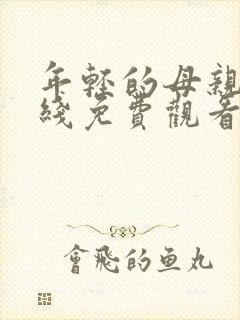 年輕的母親
綫免費觀看
會飛的鱼丸